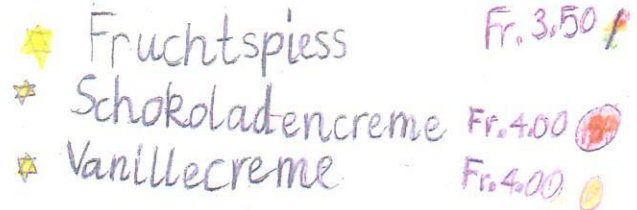 Fruchtspiess Fr. 3.50
Schokoladencreme Fr. 4.00
Vanillecreme Fr. 4.00